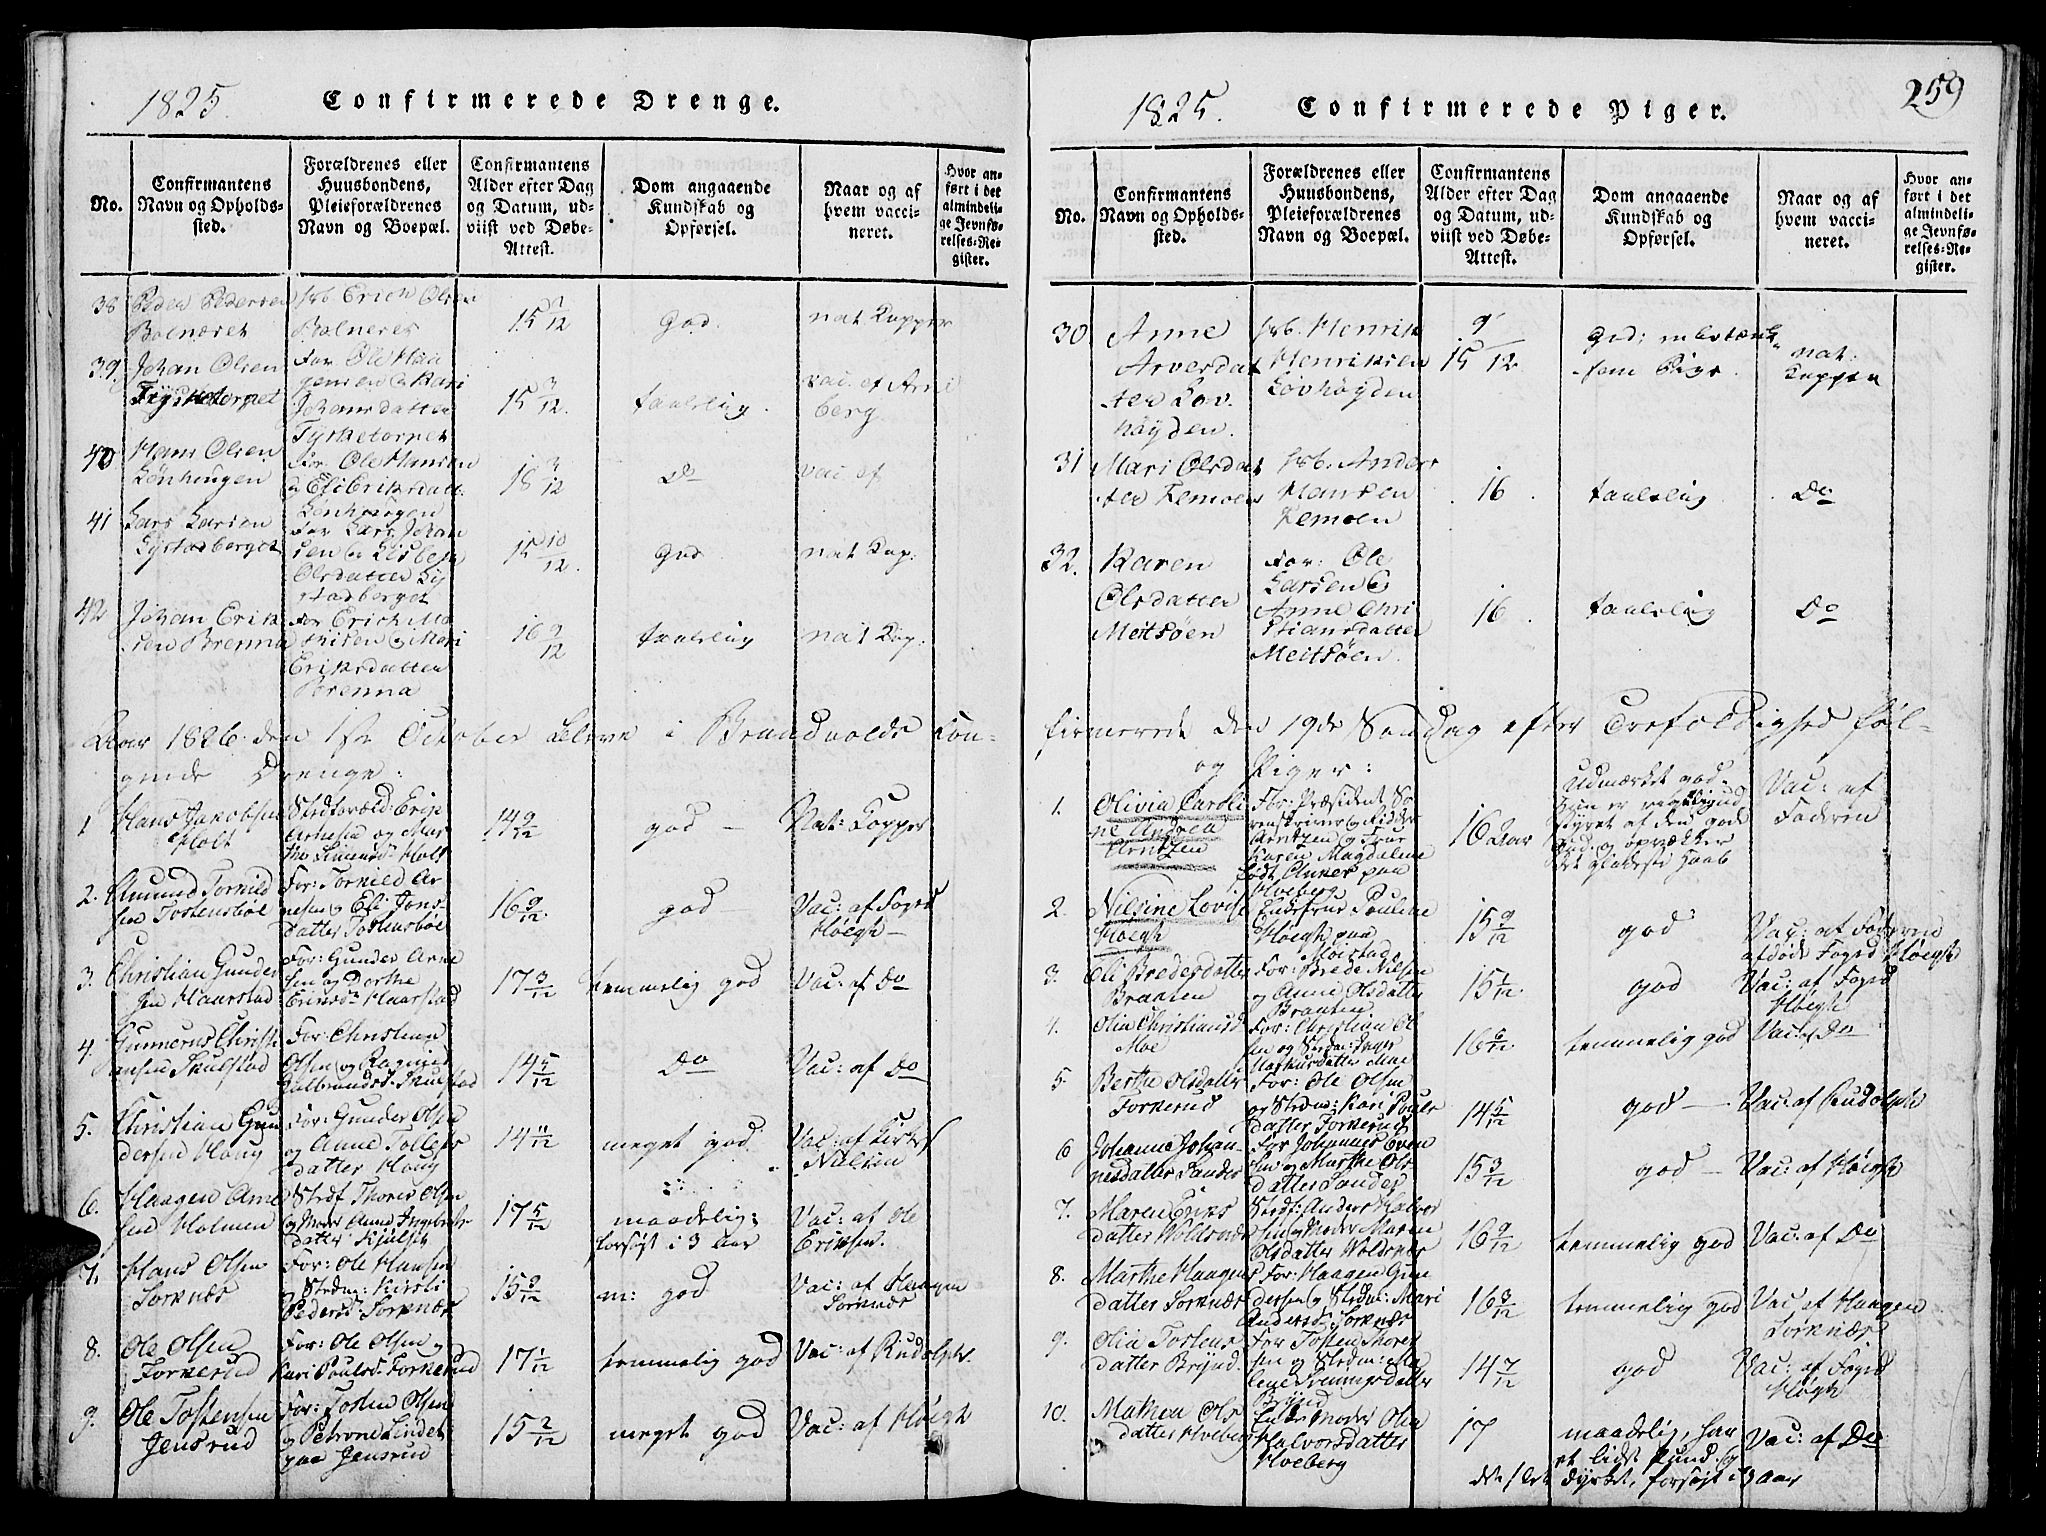 1825.
Confirmerede Drenge.
No.
Confirmantens Navn og Opholds-sted.
Forældrenes eller Huusbondens, Pleieforældrenes Navn og Boepæl.
Confirmantens Alder efter Dag og Datum, ud-viist ved Døbe-Attest.
Dom angaaende Kundskab og Opførsel.
Naar og af hvem vacci-neret.
Hvor an-ført i det almindeli-ge Jevnfø-relses-Re-gister.
38 Peder Pedersen
hsb Erich Olsen
15 7/12
God.
nat Kopper
39. Johan Olsen
Tysketorpet
For Ole Haa
gensen & Kari
Johansdatter
Tysketorpet
15 3/12.
taalelig.
vac. af Arne
berg
40 Hans Olsen
For. Ole Hansen
& Eli Eriksdatt.
18 3/12
Do
vac af
41 Lars Larsen
For Lars Johan
sen & Lisbeth
Olsdatter
15 10/12.
God
nat Kop:
42 Johan Erik
sen Brenna
For Erich Ma
thisen & Mari
Eriksdatter
Brenna
16 9/12
taalelig
nat Kop:
Aar 1826 den 1ste October bleve i Brandvolds Con-
gende Drenge:
1 Hans Jakobsen
Holt
Stedforæld: Erik
Arnesen og Mar
the Simensd. Holt
14 9/12
god —
Nat: Kopper
2. Amund Tornild
sen Tostensböe
For: Tornild Ar
nesen og Eli Jons-
datter Tostensböe
16 9/12.
god
Vac: af Foged
Höegh —
3. Christian Gunder
sen Haarstad
For: Gunder Arne
sen og Dorthe
Eriksd. Haarstad
17 3/12
temmelig god
Vac: af Do
4. Gunnerus Christi
ansen Skulstad
For: Christian
Olsen og Ragnild
Gulbrandsd. Skulstad
14 5/12
Do
Vac: af Do
5. Christian Gun
dersen Haug
For: Gunder Olsen
og Anne Tollefs
datter Haug
14 11/12
meget god
Vac: af Kirkes.
Nielsen
6. Haagen Arne
sen Holmen
Stedf Thores Olsen
og Moder Anne Ingebrets-
datter
17 5/12
maadelig;
forsögt i 3 Aar
Vac: af Ole
Eriksen.
7. Hans Olsen
Sorknæs
For: Ole Hansen
og Stedm: Kirsti
Pedersd. Sorknæs
15 9/12
m: god
Vac: af Haagen
Sorknæs
8. Ole Olsen
Torkerud
For: Ole Olsen og
Kari Poulsd. Torkerud
17 1/12
temmelig god
Vac: af Rudolph.
9. Ole Tostensen
Jensrud
For: Tosten Olsen
og Petrone Linder
paa Jensrud
15 2/12
meget god
Vac: af Höegh
1825.
Confirmerede Piger.
259
No.
Confirmantens Navn og Opholds-sted.
Forældrenes eller Huusbondens, Pleieforældrenes Navn og Boepæl.
Confirmantens Alder efter Dag og Datum, ud-viist ved Døbe-Attest.
Dom angaaende Kundskab og Opførsel.
Naar og af hvem vacci-neret.
Hvor an-ført i det almindeli-ge Jevnfø-relses-Re-gister.
30 Anne
Arvesdat
ter Lov
höyden.
hsb. Henrik
Henriksen
Lovhöyden
15 9/12
God;
som Pige.
nat:
Kopper
31 Mari Olsdat
ter Kemoen
hsb. Anders
Hansen
Kemoen
16.
taalelig
Do
32. Karen
Olsdatter
Meitsöen
For: Ole
Larsen &
Anne Chri
stiansdatter
Meitsöen.
16.
taalelig
Do
firmerede den 19de Söndag efter Trefoldighed föl-
og Piger:
1. Olivia Caroli
ne Andrea
Arntzen
For: Præsident So
renskriver og Ridder
Arntzen og Frue
Karen Magdalene
födt Anker paa
Hveberg
16 Aar
Udmærket god-
Hun er
styret af den gode
Aand og opvækker
det glædeste Haab
Vac: af
Faderen
2. Nilsine Lovise
Höegh
Enkefrue Pauline
Höegh paa
15 9/12
god
Vac: af Faderen
afdöde Foged Höegh
3. Eli Bredesdatter
Braaten
For: Brede Nilsen
og Anne Olsdatter
Braaten
15 1/12.
god
Vac: af Foged
Höegh
4. Olia Christiansd.
Moe
For: Christian Ol
sen og Stedm: Inger
Markusdatter Moe
16 6/12
temmelig god
Vac: af Do
5. Berthe Olsdatter
Torkerud
For: Ole Olsen
og Stedm: Kari Pouls
datter Torkerud
14 5/12
god —
Vac: af Rudolph
6 Johanne Johan-
nesdatter Sander
For Johannes Even
sen og Marthe Ols-
datter Sander
15 3/12
god —
Vac: af Höegh
7. Maren Eriks
datter Woldsnæs
Stedf: Anders Halvor
sen og Moder Maren
Olsdatter Woldsnæs
16 9/12
temmelig god
Vac: af Do
8. Marthe Haagens
datter Sorknæs
For: Haagen Gun
dersen og Stedm: Mari
Andersd. Sorknæs
16 3/12
temmelig god
Vac af Haagen
Sorknæs
9. Olia Tostens
datter Brÿnd.
For Tosten Thores
sen og Stedm: Ma
lene Svenningsdatter
Brÿnd
14 7/12
god
Vac: af Foged
Högh
10. Mathea Ols
datter Hveberg
Enke Moder Olia
Halvorsdatter
Hveberg
17
maadelig, har
et lidet Kund
dyrket, forsögt i 3 Aar
Vac: af Do